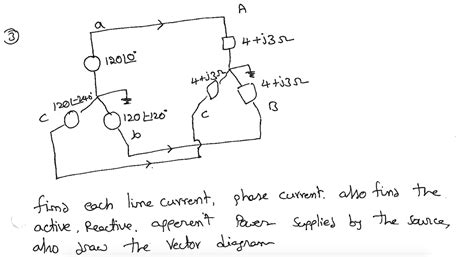 A
a
③
4+j3Ω
120∠0°
4+j3Ω
4+j3Ω
120∠-240°
C
120∠-120°
b
C
B
find each line current, phase current. also find the
active, Reactive, apperent Power supplied by the source,
also draw the vector diagram